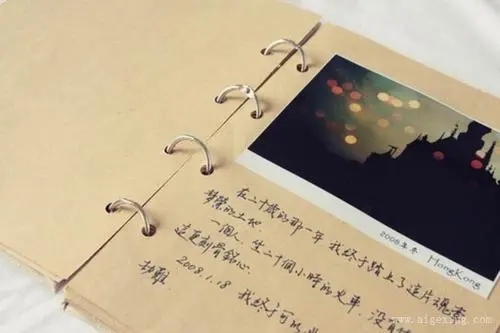 2008年冬 HongKong
在二十歲的那一年 我终于踏上了這片魂牽
梦縈的土地
一個人.坐二十個小時的火車.没有
這更刻骨銘心
2008.1.18
劫難 我终于可以
www.aigexing.com